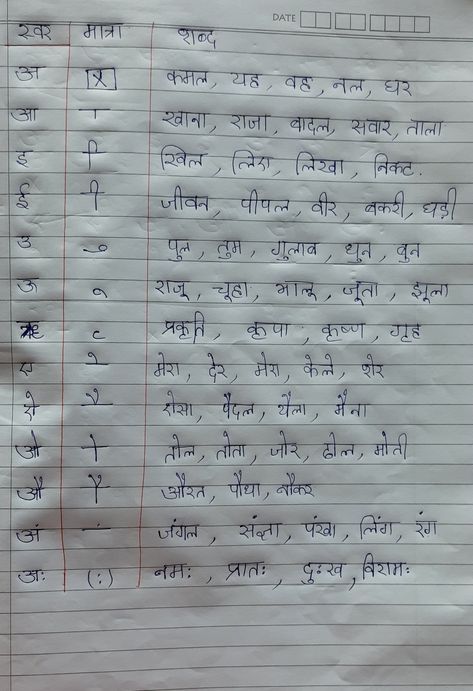 DATE
स्वर मात्रा शब्द
अ [x] कमल, यह, वह, नल, घर
आ ा खाना, राजा, बादल, सवार, ताला
इ ि खिल, लिए, लिखा, निकट.
ई ी जीवन, पीपल, वीर, बकरी, घड़ी
उ ु पुल, तुम, गुलाब, धुन, बुन
ऊ ू राजू, चूहा, भालू, जूता, झूला
ऋ ृ प्रकृति, कृपा, कृष्ण, गृह
ए े मेरा, देर, मेरा, केले, शेर
ऐ ै ऐसा, पैदल, थैला, मैना
ओ ो तोल, तोता, जोर, ढोल, मोती
औ ौ औरत, पौधा, नौकर
अं ं जंगल, पंखा, लिंग, रंग
अः (:) नमः, प्रातः, दुःख, विरामः